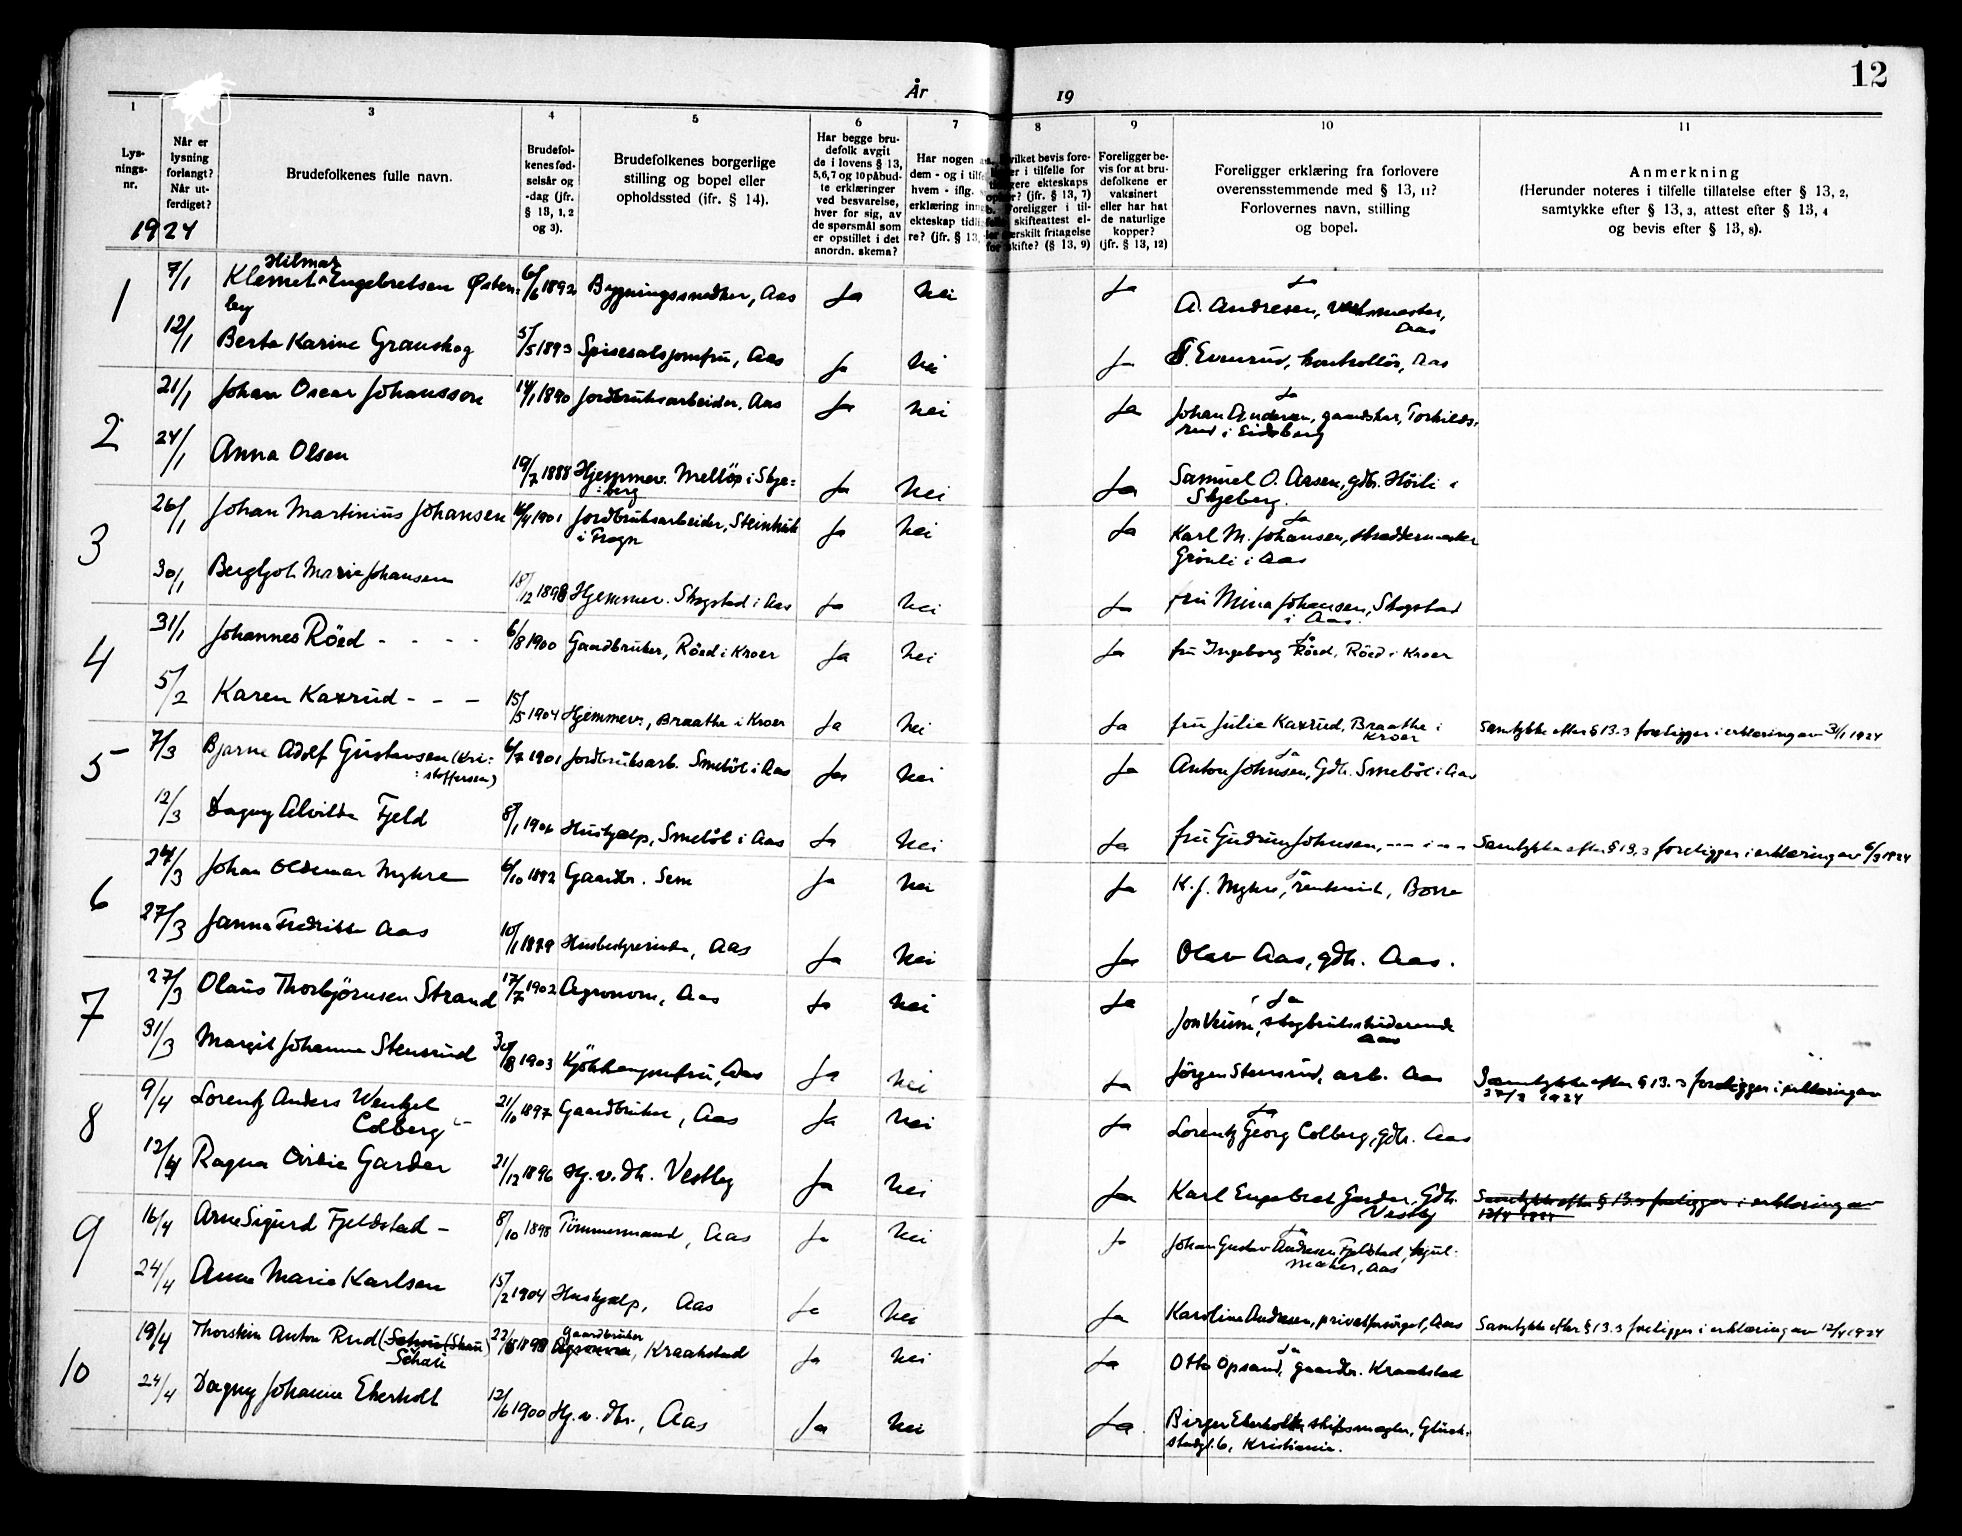 12
År 19
1 2 3 4 5 6 7 8 9 10 11
Lysningsnr.
Når er lysning forlangt? Når utferdiget?
Brudefolkenes fulle navn.
Brudefolkenes fødselsår og -dag (jfr. § 13, 1, 2 og 3).
Brudefolkenes borgerlige stilling og bopel eller opholdssted (ifr. § 14).
Har begge brudefolk avgit de i lovens § 13, 5, 6, 7 og 10 påbudte erklæringer ved besvarelse, hver for sig, av de spørsmål som er opstillet i det anordn. skema?
Foreligger bevis for at brudefolkene er vaksinert eller har hat de naturlige kopper? (jfr. § 13, 12)
Foreligger erklæring fra forlovere overensstemmende med § 13, 11? Forlovernes navn, stilling og bopel.
Anmerkning
(Herunder noteres i tilfelle tillatelse efter § 13, 2, samtykke efter § 13, 3, attest efter § 13, 4 og bevis efter § 13, 8).
1924
1 7/1 Klemet Hilmar Engebretsen Østenby 6/6 1892 Bygningssnedker, Aas Ja Nei Ja Ja
A. Andresen, Aas
12/1 Berta Karine Grauskog 5/5 1893 Spisesalsjomfru, Aas Ja Nei Ja Evenrud, kontrollör, Aas
2 21/1 Johan Oscar Johansson 14/1 1890 Jordbruksarbeider, Aas Ja Nei Ja Ja
Johan Andersen, gaardbker, Torkildsrud i Eidsberg
24/1 Anna Olsen 19/7 1888 Hjemmev. Mellöp i Skjeberg Ja Nei Ja Samuel O. Arsen, gdb. Höili i Skjeberg.
3 26/1 Johan Martinius Johansen 1901 Jordbruksarbeider, i Frogn Ja Nei Ja Ja
Karl M. Johansen, skreddermester Grönli i Aas
30/1 Bergljot Marie Johansen 18/12 1898 Hjemmev. Skogstad i Aas Ja Nei Ja fru Mina Johansen, Skogstad i Aas.
4 31/1 Johannes Röed - - - - 6/8 1900 Gaardbruker, Röed i Kroer Ja Nei Ja Ja
fru Ingeborg Röed, Röed i Kroer
5/2 Karen Kaxrud - - - 15/5 1904 Hjemmev., Braathe i Kroer Ja Nei Ja fru Julie Kaxrud, Braathe i Kroer Samtykke efter § 13.3 foreligger i erklæring av 3/1 1924
5 7/3 Bjarne Adolf Gustavsen (Kristoffersen) 6/7 1901 Jordbruksarb. Smeböl i Aas Ja Nei Ja Ja
Anton Johnsen, Gdb. Smeböl i Aas
12/3 Dagny Alvilda Fjeld 8/1 Hushjælp, Smeböl i Aas Ja Nei Ja fru Gudrun Johnsen, --- i -- Samtykke efter § 13,3 foreligger i erklæring av 6/3 1924
6 24/3 Johan Oldemar Myhre 6/10 1892 Gaardbr. Sem Ja Nei Ja Ja
K. J. Myhre, rentenist, Borre
27/3 Janna Fredrikke Aas 10/1 1899 Husbestyrerinde, Aas Ja Nei Ja Olav Aas, gdb. Aas.
7 27/3 Olaus Thorbjörnsen Strand 17/7 1902 Agronom, Aas Ja Nei Ja Ja
Jon Veum, skogbruksstuderende Aas
31/3 Margit Johanne Stensrud 30/8 1903 Kjökkenjomfru, Aas Ja Nei Ja Jörgen Stensrud, arb. Aas Samtykke efter § 13.3 foreligger i erklæring av 27/3 1924
8 9/4 Lorentz Anders Wentzel Colberg 21/10 1897 Gaardbruker, Aas Ja Nei Ja Ja
Lorentz Georg Colberg, gdb. Aas
12/4 Ragna Garder 21/12 1896 Hj. v. dh. Vestby Ja Nei Ja Karl Engebret Garder, Gdb. Vestby Samtykke efter § 13.3 foreligger i erklæring av 12/4 1924
9 16/4 Arne Sigurd Fjeldstad - 8/10 1898 Tömmermand, Aas Ja Nei Ja Ja
Johan Gustav Andresen Fjeldstad, hjulmaker, Aas
24/4 Anna Marie Karlsen 15/2 1904 Hushjælp, Aas Ja Nei Ja Karoline Andresen, privatforsörget, Aas Samtykke efter § 13.3 foreligger i erklæring av 12/4 1924
10 19/4 Thorstein Anton Rud (Skau) 22/8 gaardbruker Agronom, Kraakstad Ja Nei Ja Ja
Otto Opsand, gaardbr. Kraakstad
24/4 Dagny Johanne Ekerholt 12/6 1900 Hj. v. dh., Aas Ja Nei Ja Birger Ekerholt, skibsmægler, Glückstadgt. 6, Kristiania.